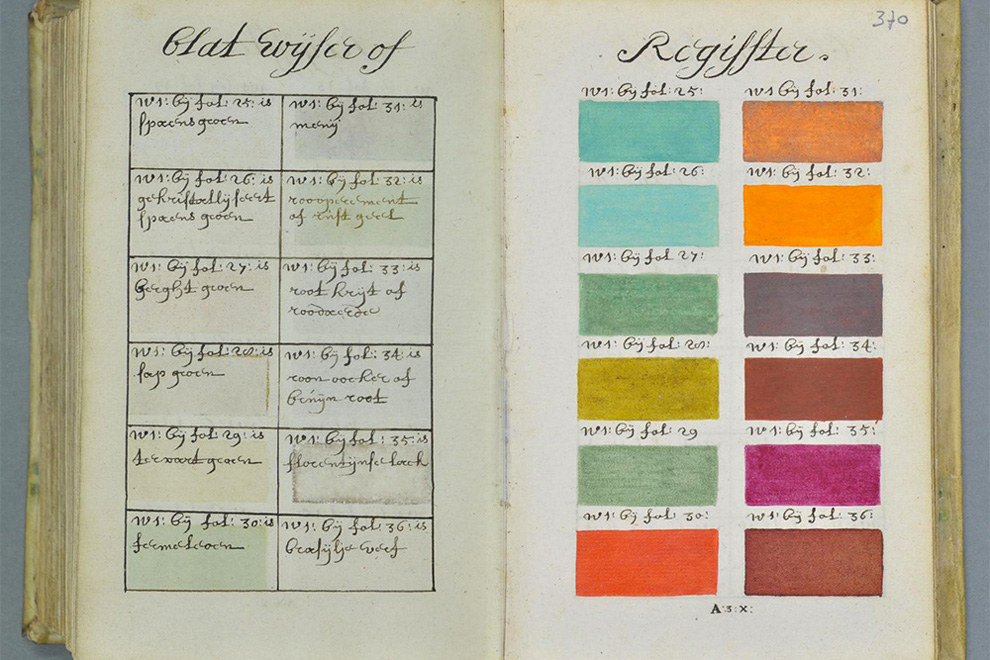 Blat Wÿser of
w1: bÿ fol: 25: is
spaens groen
w1: bÿ fol: 31: is
menÿ
w1: bÿ fol: 26: is
gekristallÿseert
spaens groen
w1: bÿ fol: 32: is
rooopriement
of rúst geel
w1: bÿ fol: 27: is
bergh groen
w1: bÿ fol: 33: is
root krÿt of
roodaerde
w1: bÿ fol: 28: is
sap groen
w1: bÿ fol: 34: is
roon oocker of
brúÿn root
w1: bÿ fol: 29: is
groen
w1: bÿ fol: 35: is
florentÿnse lack
w1: bÿ fol: 30: is
w1: bÿ fol: 36: is
brasÿlje verf
370
Regisster.
w1: bÿ fol: 25:
w1 bÿ fol: 31:
w1: bÿ fol: 26:
w1: bÿ fol: 32:
w1: bÿ fol: 27:
w1: bÿ fol: 33:
w1: bÿ fol: 28:
w1: bÿ fol: 34:
w1: bÿ fol: 29
w1: bÿ fol: 35:
w1: bÿ fol: 30:
w1: bÿ fol: 36:
A:3:X: